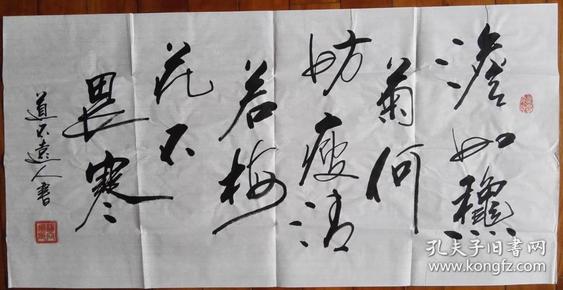 澹如穐
菊何
妨瘦清
若梅
花不
畏寒
道不遠人書
孔夫子旧书网
www.kongfz.com